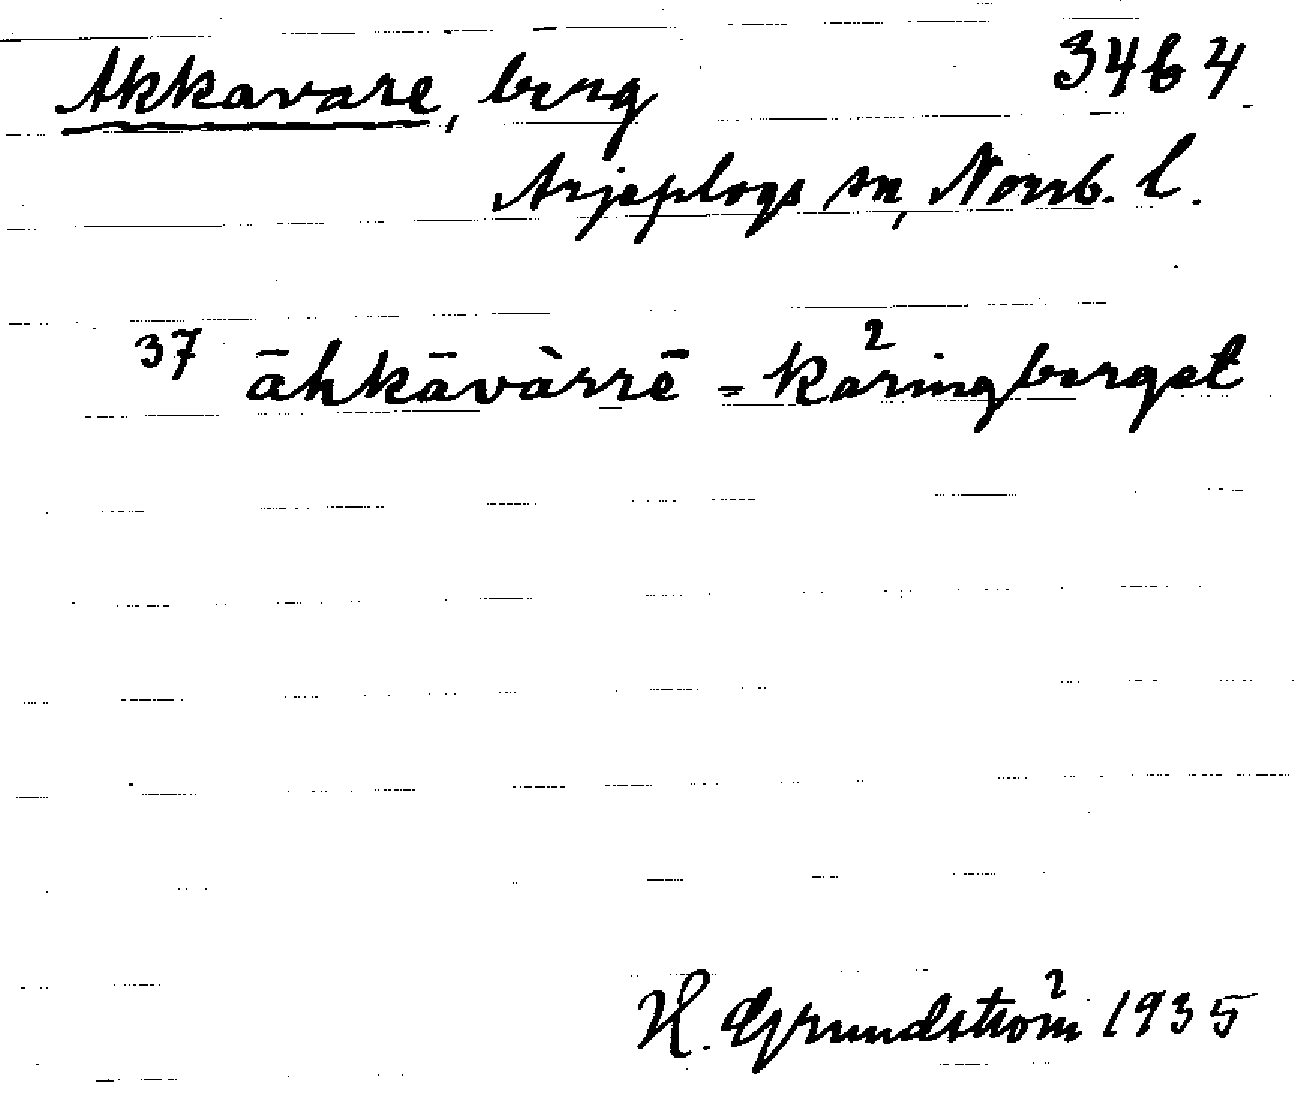 Akkavare, berg 3464
Arjeplogs sn, Norrb. l.
37 āhkāvàrrē = Käringberget
H. Grundström 1935